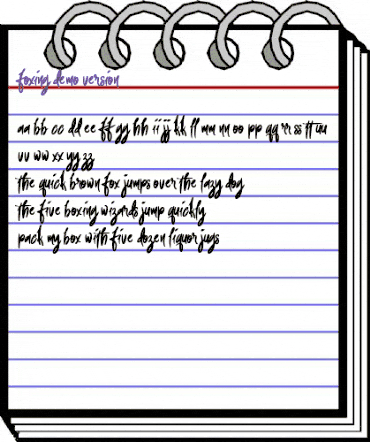 foxing demo version
aa bb cc dd ee ff gg hh ii jj kk ll mm nn oo pp qq rr ss tt uu
vv ww xx yy zz
the quick brown fox jumps over the lazy dog
the five boxing wizards jump quickly
pack my box with five dozen liquor jugs